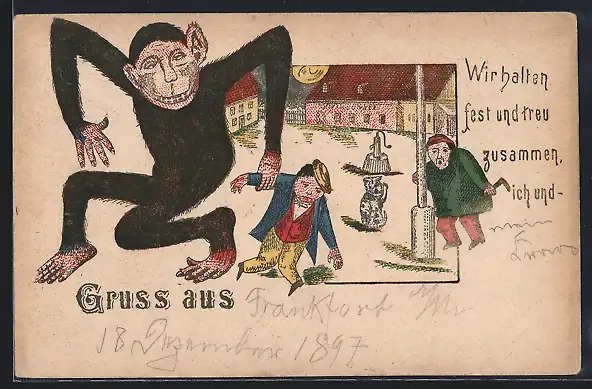 Wir halten
fest und treu
zusammen,
ich und-
mein
Gruss aus Frankfort a/M
18 Dezember 1897